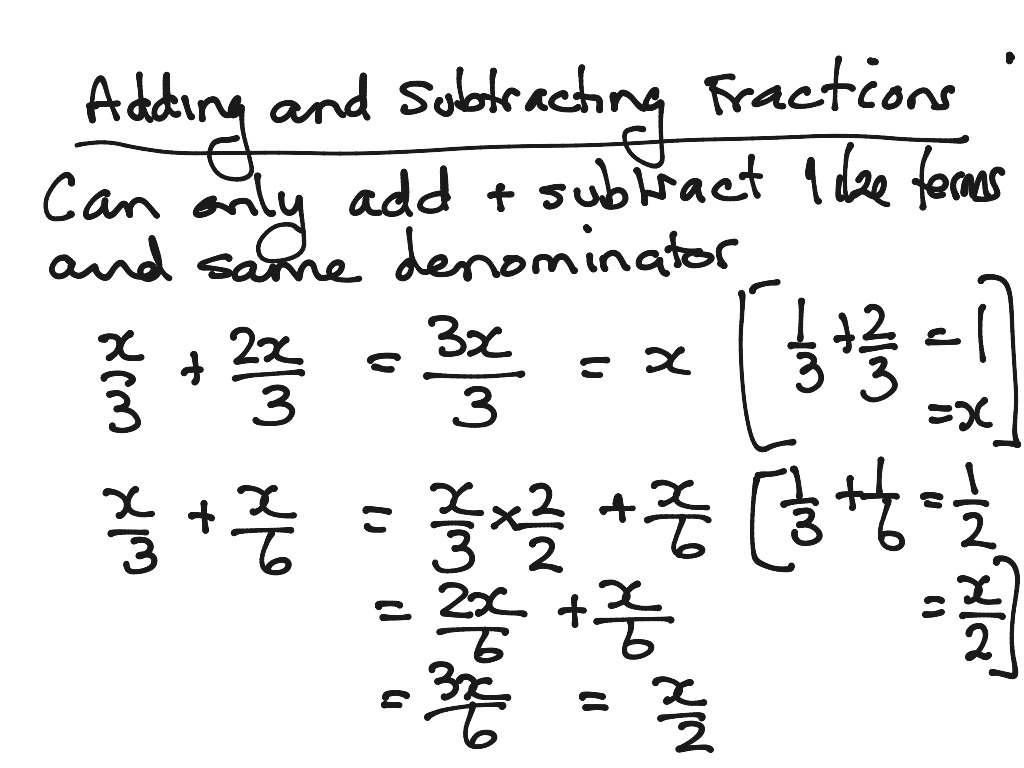 Adding and Subtracting Fractions
Can only add + subtract like terms
and same denominator
x/3 + 2x/3 = 3x/3 = x [1/3 + 2/3 = 1
= x]
x/3 + x/6 = x/3 × 2/2 + x/6 [1/3 + 1/6 = 1/2
= 2x/6 + x/6 = x/2]
= 3x/6 = x/2